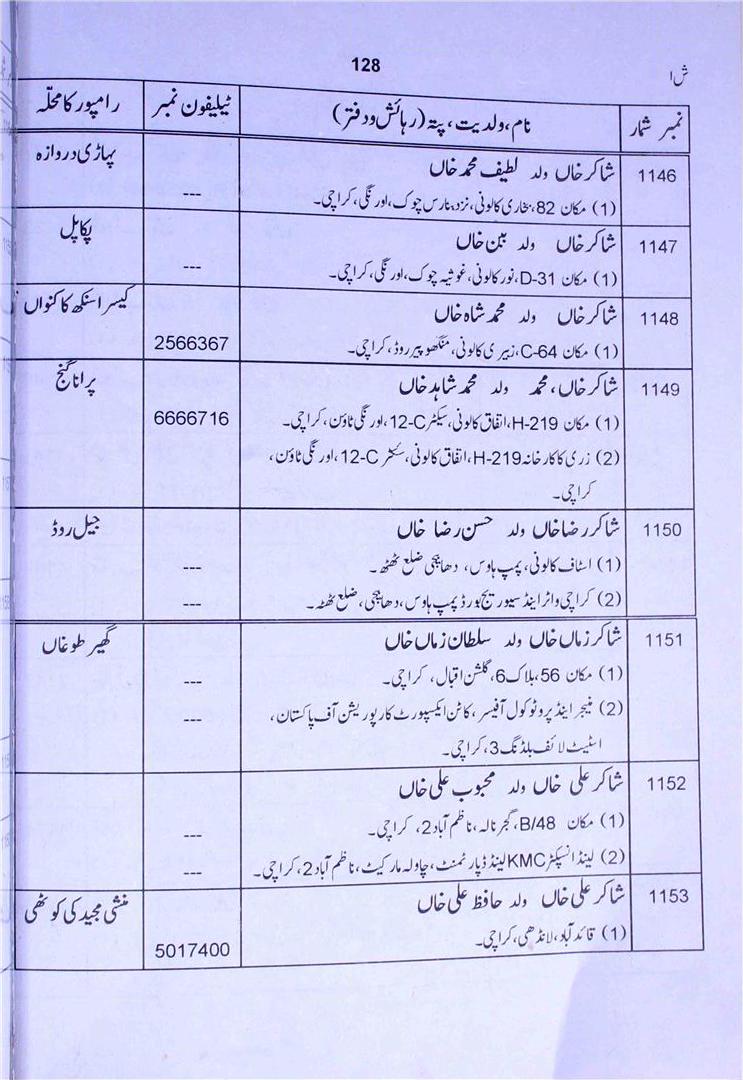 128
ش ا
نمبر شمار	نام، ولدیت، پتہ (رہائش و دفتر)	ٹیلیفون نمبر	رامپور کا محلّہ
1146	شاکر خاں ولد لطیف محمد خاں	پہاڑی دروازہ
(1) مکان 82، بخاری کالونی، نزد بنارس چوک، اورنگی، کراچی۔	---
1147	شاکر خاں ولد بین خاں	پکا پل
(1) مکان D-31، نور کالونی، غوثیہ چوک، اورنگی، کراچی۔	---
1148	شاکر خاں ولد محمد شاہ خاں	کیسر اسنکھ کا کنواں
(1) مکان C-64، زبیری کالونی، منگھو پیر روڈ، کراچی۔	2566367
1149	شاکر خاں، محمد ولد محمد شاہد خاں	پرانا گنج
(1) مکان H-219، اتفاق کالونی، سیکٹر 12-C، اورنگی ٹاؤن، کراچی۔	6666716
(2) زری کا کارخانہ H-219، اتفاق کالونی، سکٹر 12-C، اورنگی ٹاؤن،
کراچی۔
1150	شاکر رضا خاں ولد حسن رضا خاں	جیل روڈ
(1) اسٹاف کالونی، پمپ ہاوس، دھابیجی ضلع ٹھٹھہ۔	---
(2) کراچی واٹر اینڈ سیوریج بورڈ پمپ ہاوس، دھابیجی، ضلع ٹھٹہ۔	---
1151	شاکر زماں خاں ولد سلطان زماں خاں	گھیر طوغاں
(1) مکان 56، بلاک 6، گلشن اقبال، کراچی۔	---
(2) منیجر اینڈ پروٹوکول آفیسر، کاٹن ایکسپورٹ کارپوریشن آف پاکستان،	---
اسٹیٹ لائف بلڈنگ 3، کراچی۔
1152	شاکر علی خاں ولد محبوب علی خاں
(1) مکان B/48، گجر نالہ، ناظم آباد 2، کراچی۔	---
(2) لینڈ انسپکٹر KMC لینڈ ڈپارٹمنٹ، چاولہ مارکیٹ، ناظم آباد 2، کراچی۔	---
1153	شاکر علی خاں ولد حافظ علی خاں	منشی مجید کی کوٹھی
(1) قائد آباد، لانڈھی، کراچی۔	5017400